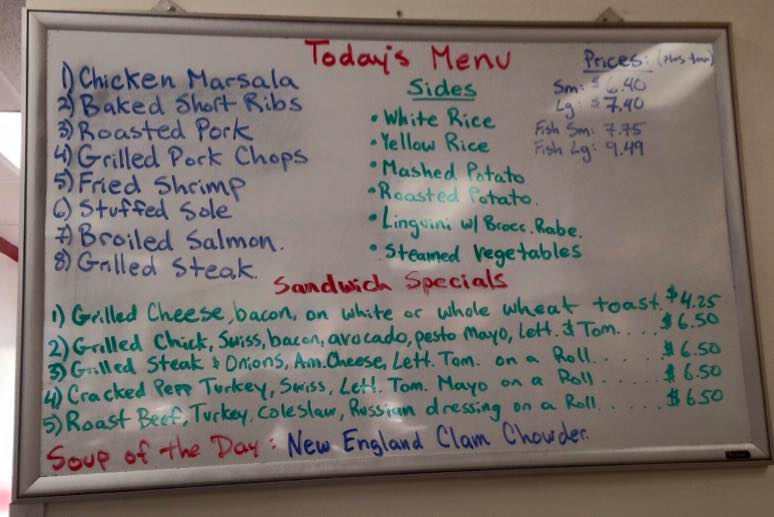 Today's Menu
1) Chicken Marsala
2) Baked Short Ribs
3) Roasted Pork
4) Grilled Pork Chops
5) Fried Shrimp
6) Stuffed Sole
7) Broiled Salmon.
8) Grilled Steak.
Sides
• White Rice
• Yellow Rice
• Mashed Potato
• Roasted Potato.
• Linguini w/ Brocc. Rabe.
• Steamed vegetables
Prices: (plus tax)
Sm: $6.40
Lg: $7.40
Fish Sm: 7.75
Fish Lg: 9.49
Sandwich Specials
1) Grilled Cheese, bacon, on white or whole wheat toast. $4.25
2) Grilled Chick, Swiss, bacon, avocado, pesto Mayo, Lett. & Tom.... $6.50
3) Grilled Steak & Onions, Am. Cheese, Lett. Tom. on a Roll..... $6.50
4) Cracked Pepp Turkey, Swiss, Lett. Tom. Mayo on a Roll..... $6.50
5) Roast Beef, Turkey, Coleslaw, Russian dressing on a Roll..... $6.50
Soup of the Day: New England Clam Chowder.